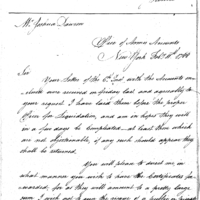 Mr Joshua Dawson
Office of Army Accounts
New York Feb. 16th 1788
Sir
Your Letter of the 6th Inst with the Accounts en-
closed were received on friday last and agreeably to
your request I have laid them before the proper
Officer for liquidation, and am in hopes they will
in a few days be compleated, at least those which
are not objectionable, if any such should appear they
shall be returned.
You will please to direct me, in
what manner you wish to have the Certificates for-
warded; for as they will amount to a pretty large
sum I wish not to run the